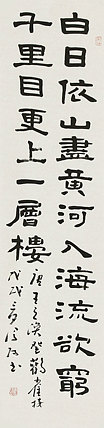 白日依山盡黃河入海流欲窮
千里目更上一層樓
唐王之渙登鸛雀樓
戊戌